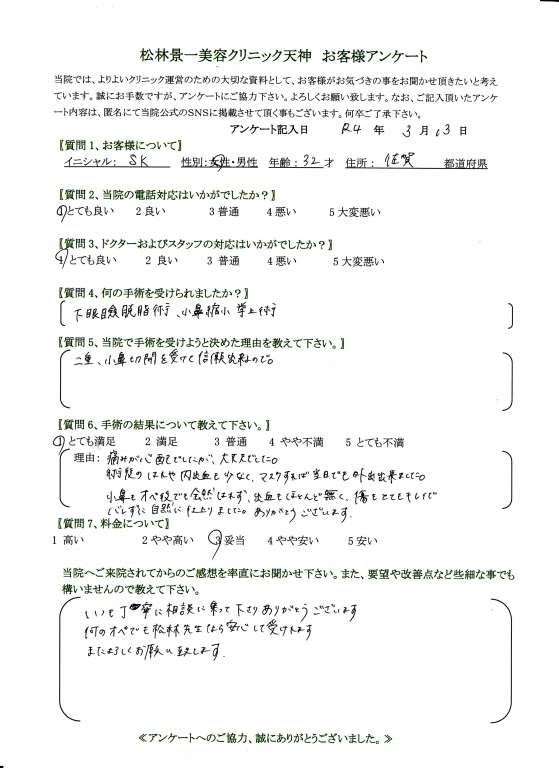 松林景一美容クリニック天神　お客様アンケート
当院では、よりよいクリニック運営のための大切な資料として、お客様がお気づきの事をお聞かせ頂きたいと考え
ています。誠にお手数ですが、アンケートにご協力下さい。よろしくお願い致します。なお、ご記入頂いたアンケ
ート内容は、匿名にて当院公式のSNSに掲載させて頂く事もございます。何卒ご了承下さい。
アンケート記入日　R4 年 3 月 13 日
〖質問 1、お客様について〗
イニシャル： SK　性別：女性・男性　年齢：32 才　住所： 佐賀　都道府県
〖質問 2、当院の電話対応はいかがでしたか？〗
1 とても良い　2 良い　3 普通　4 悪い　5 大変悪い
〖質問 3、ドクターおよびスタッフの対応はいかがでしたか？〗
1 とても良い　2 良い　3 普通　4 悪い　5 大変悪い
〖質問 4、何の手術を受けられましたか？〗
下眼瞼脱脂術、小鼻縮小 挙上術
〖質問 5、当院で手術を受けようと決めた理由を教えて下さい。〗
二重、小鼻切開を受けて信頼出来るので。
〖質問 6、手術の結果について教えて下さい。〗
1 とても満足　2 満足　3 普通　4 やや不満　5 とても不満
理由： 痛みが心配でしたが、大丈夫でした。
術後のはれや内出血も少なく、マスクすれば当日でも外出出来ました。
小鼻もオペ後でも全然はれず、出血もほとんど無く、傷もとてもキレイで
バレずに自然に仕上りました。ありがとうございます。
〖質問 7、料金について〗
1 高い　2 やや高い　3 妥当　4 やや安い　5 安い
当院へご来院されてからのご感想を率直にお聞かせ下さい。また、要望や改善点など些細な事でも
構いませんので教えて下さい。
いつも丁寧に相談に乗って下さりありがとうございます
何のオペでも松林先生なら安心して受けれます
またよろしくお願い致します。
≪アンケートへのご協力、誠にありがとうございました。≫